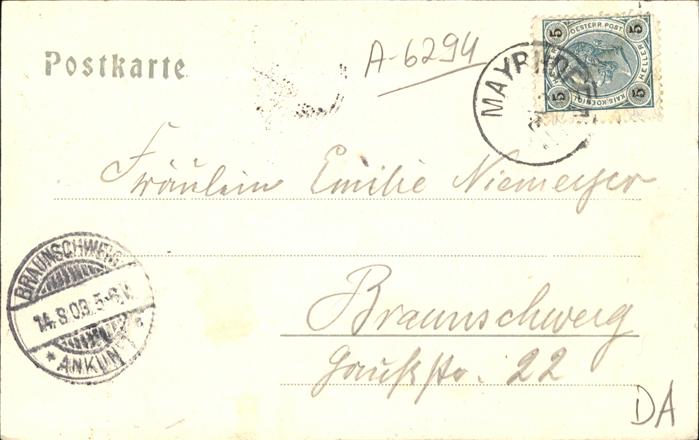 Postkarte
A-6294
5 OESTERR. POST. 5
KAIS. KOENIGL. HELLER
5 5
MAYRHOFEN
Fräulein Emilie Niemeyer
BRAUNSCHWEIG
14.8.03.5-6.V.
* ANKUNFT
Braunschweig
Gaußstr. 22
DA